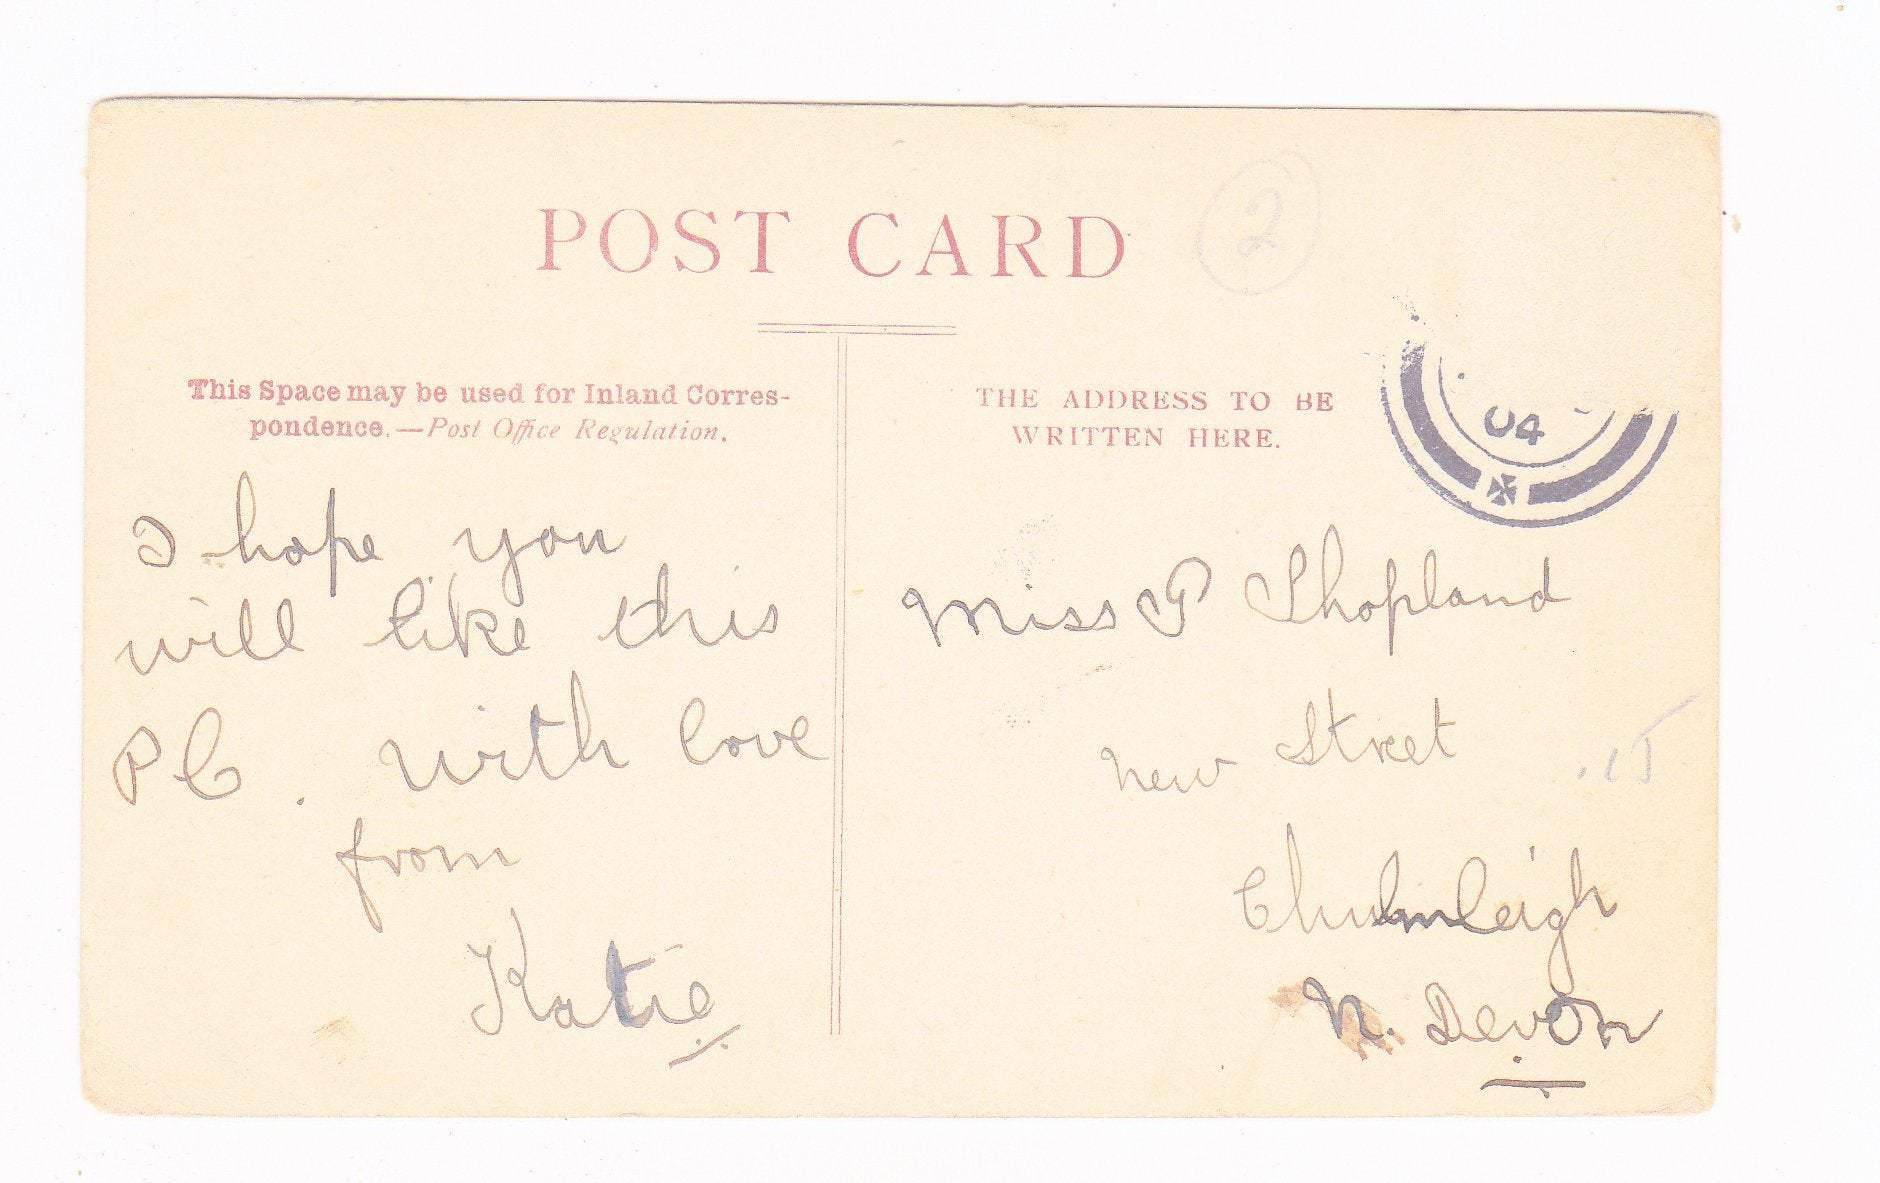 POST CARD
2
This Space may be used for Inland Corres-
pondence.—Post Office Regulation.
THE ADDRESS TO BE
WRITTEN HERE.
04
I hope you
will like this
PC. with love
from
Katie
Miss P Shopland
New Street
.15
Chulmleigh
N. Devon